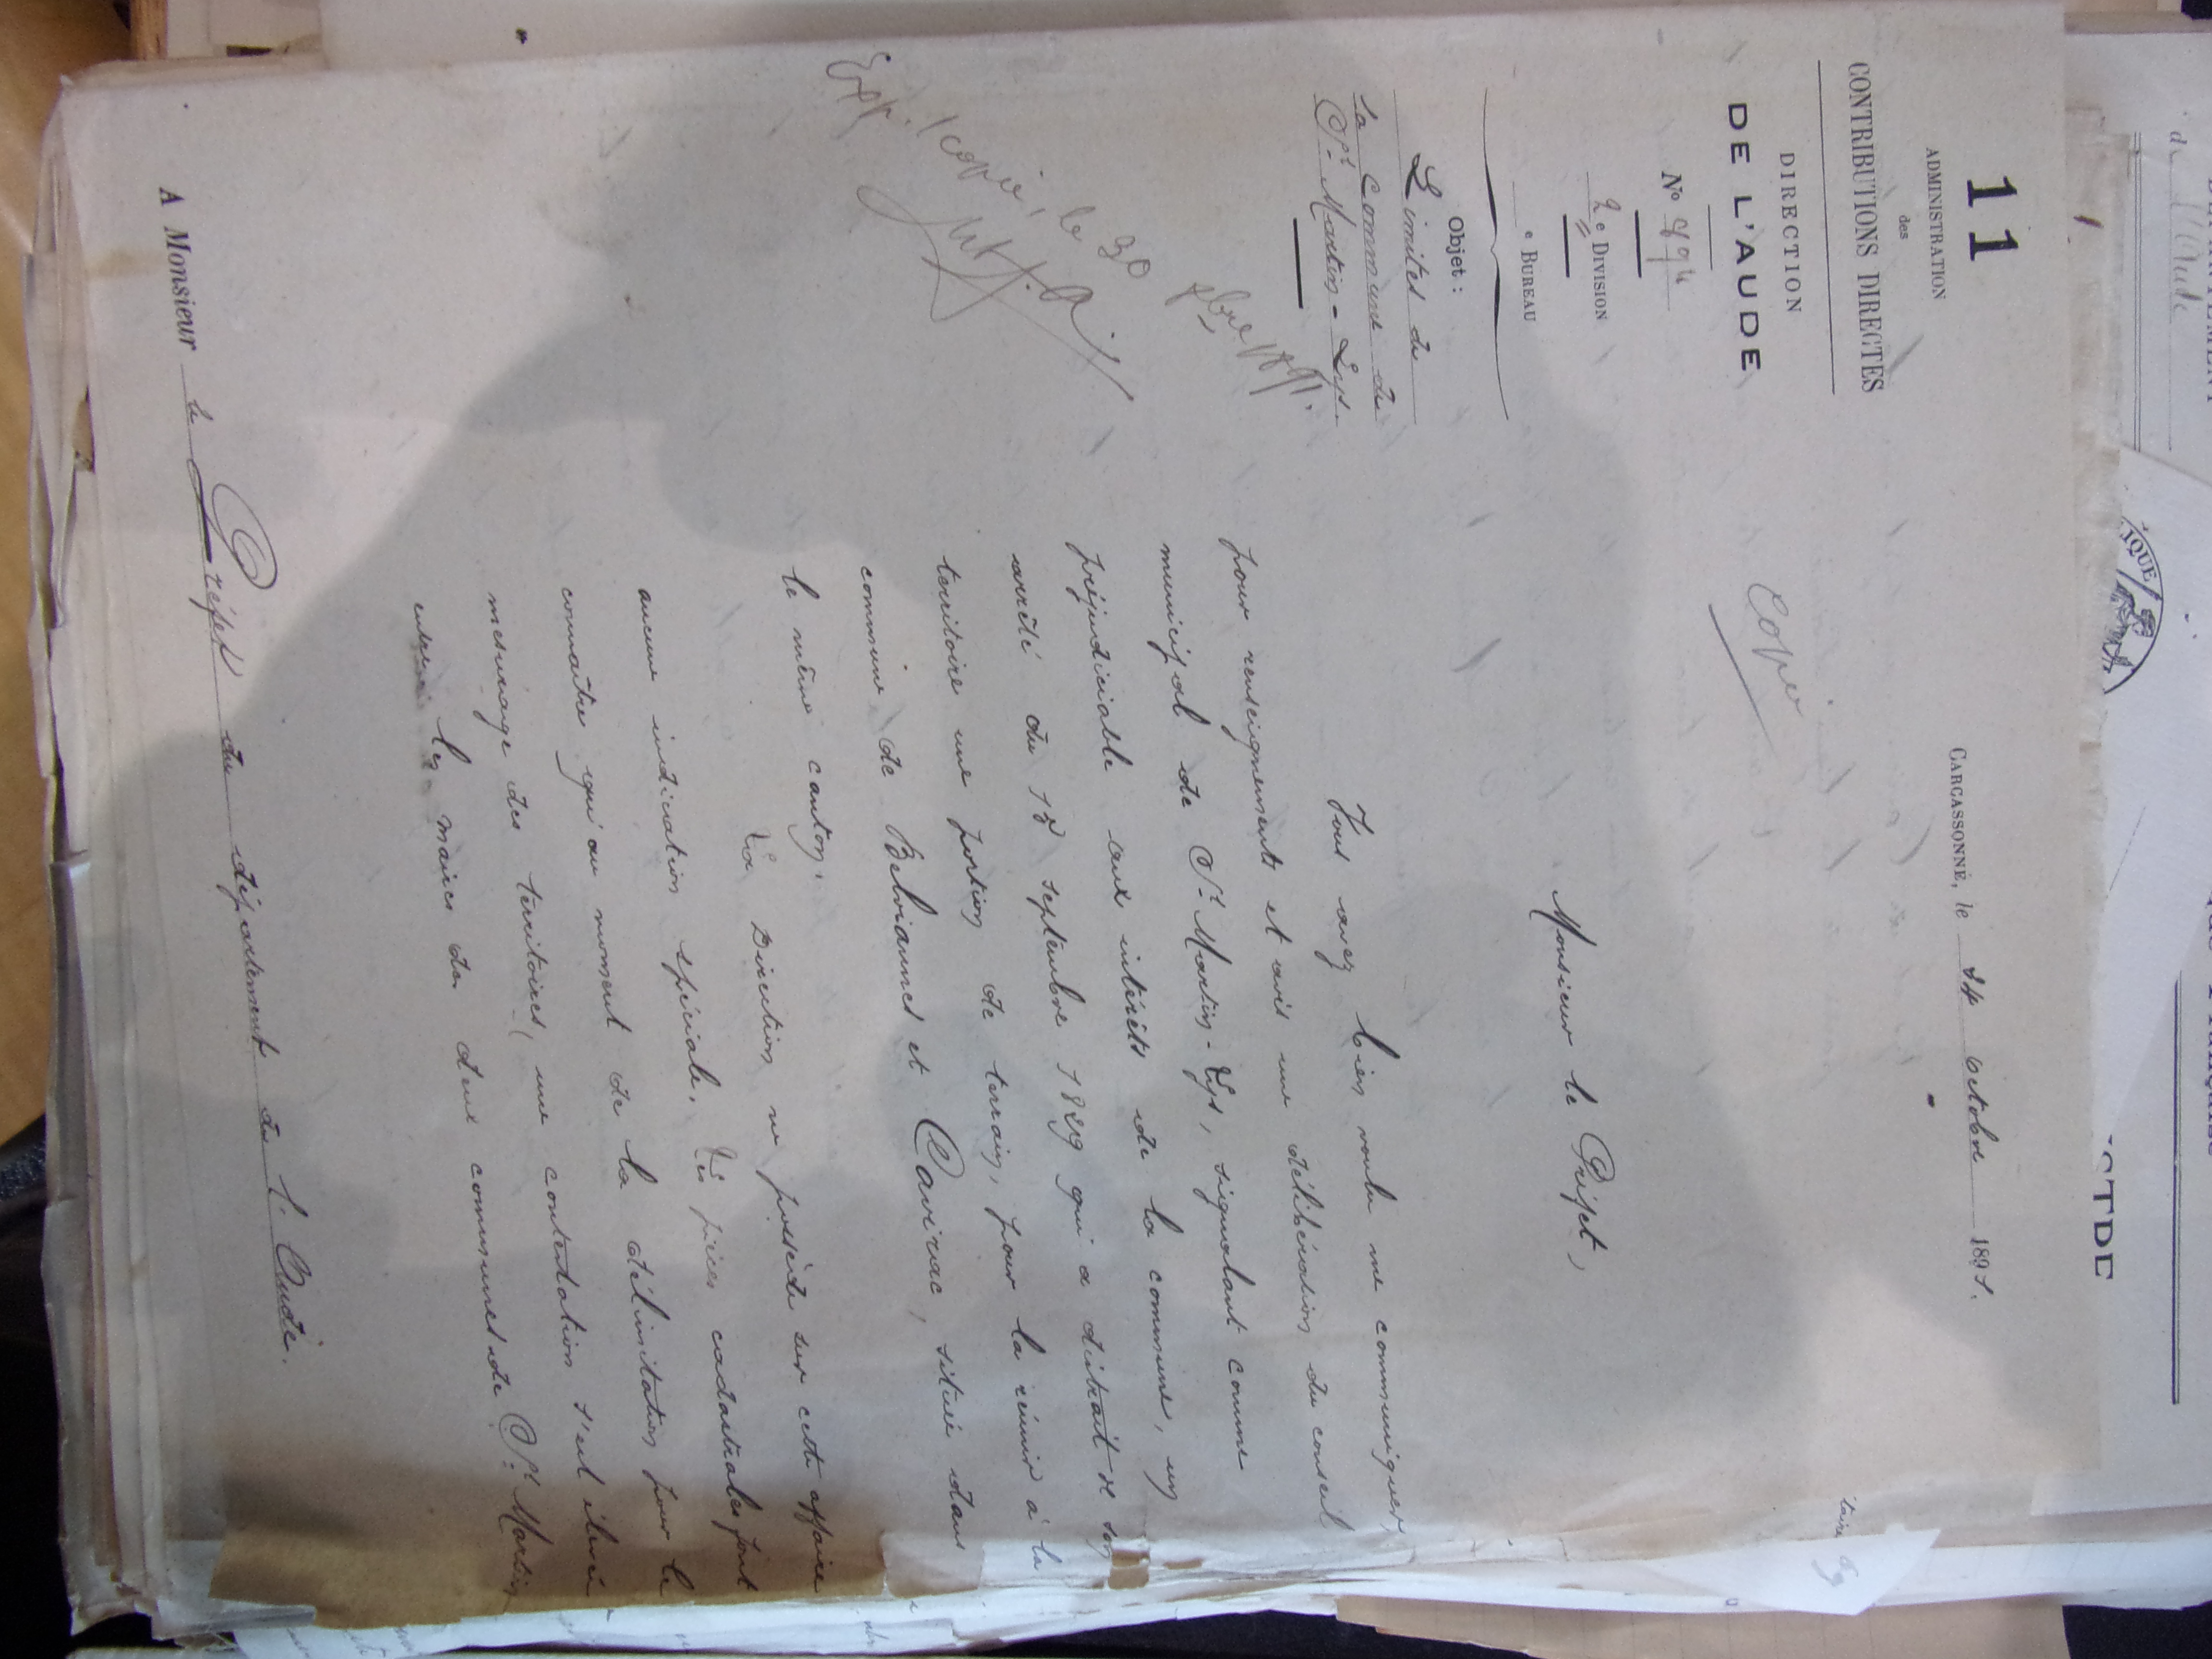 DÉPARTEMENT
de l'Aude
que Française
IQUE
11
ADMINISTRATION
des
CONTRIBUTIONS DIRECTES
DIRECTION
DE L'AUDE
N° 894
2e DIVISION
e BUREAU
Objet :
Limites de
la commune de
St Martin-Lys.
Exp. copie, le 30 8bre 1891.
CARCASSONNE, le 24 Octobre 1891.
Copie
Monsieur le Préfet,
Vous avez bien voulu me communiquer,
pour renseignements et avis une délibération du conseil
municipal de St Martin-Lys, signalant comme
préjudiciable aux intérêts de la commune, un
arrêté du septembre 1829 qui a distrait de son
territoire une portion de terrain, pour la réunir à la
commune de Belviannes et Cavirac, située dans
le même canton.
La Direction ne possède sur cette affaire
aucune indication spéciale. Les pièces cadastrales font
connaître qu'au moment de la délimitation pour le
mesurage des territoires, une contestation s'est élevée
entre les maires des deux communes de St Martin
A Monsieur le Préfet du département de l'Aude.